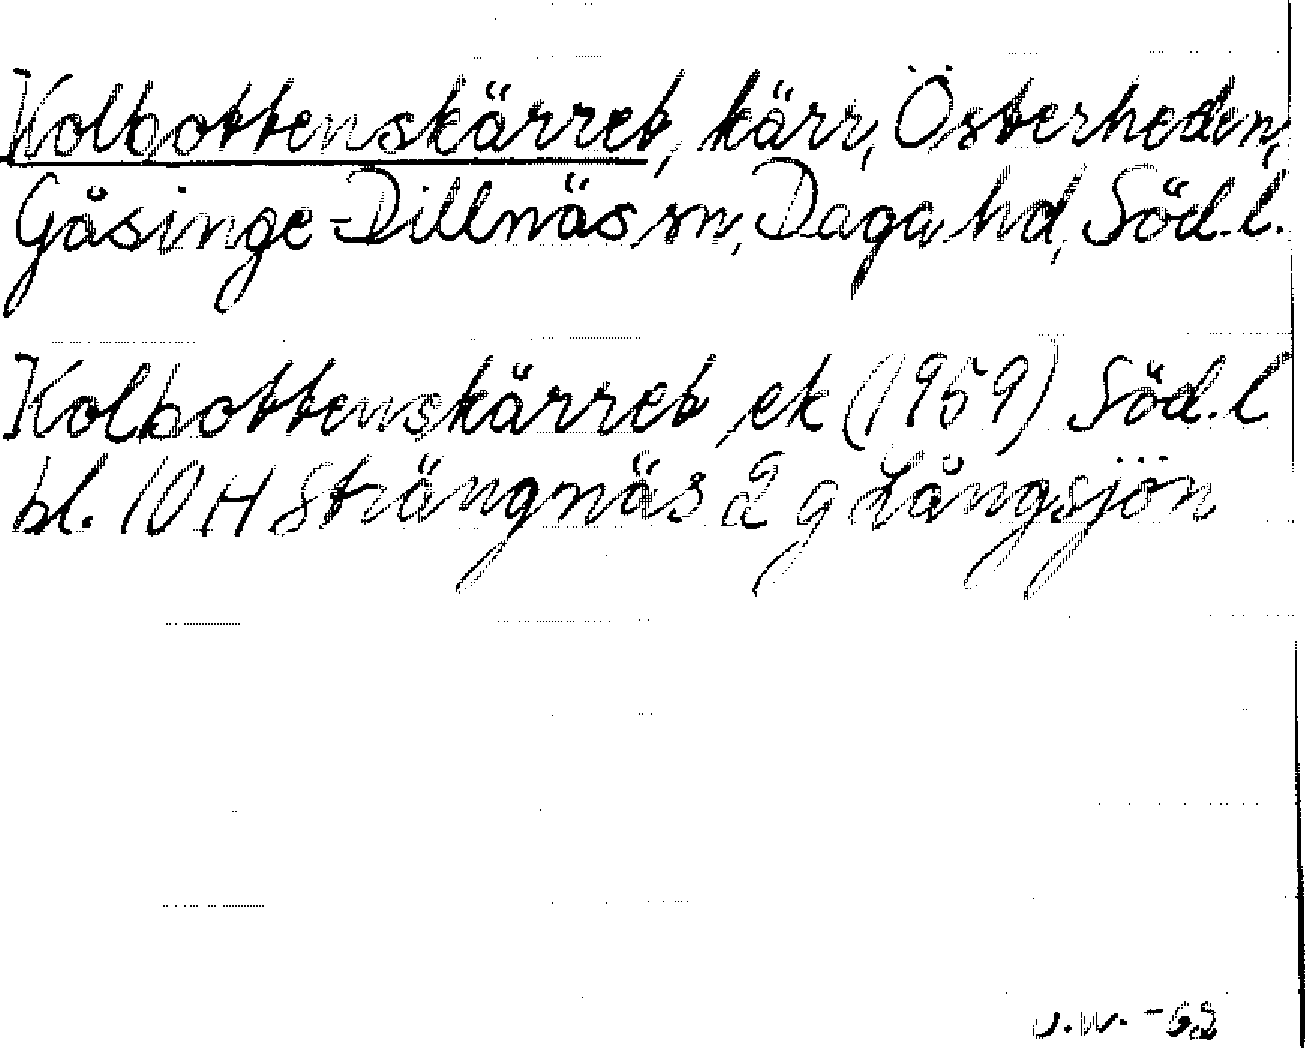 Kolbottenskärret, kärr, Österheden,
Gåsinge-Dillnäs sn, Daga hd, Söd.l.
Kolbottenskärret, ek (1959) Söd.l
bl. 10 H Strängnäs 2 g Långsjön